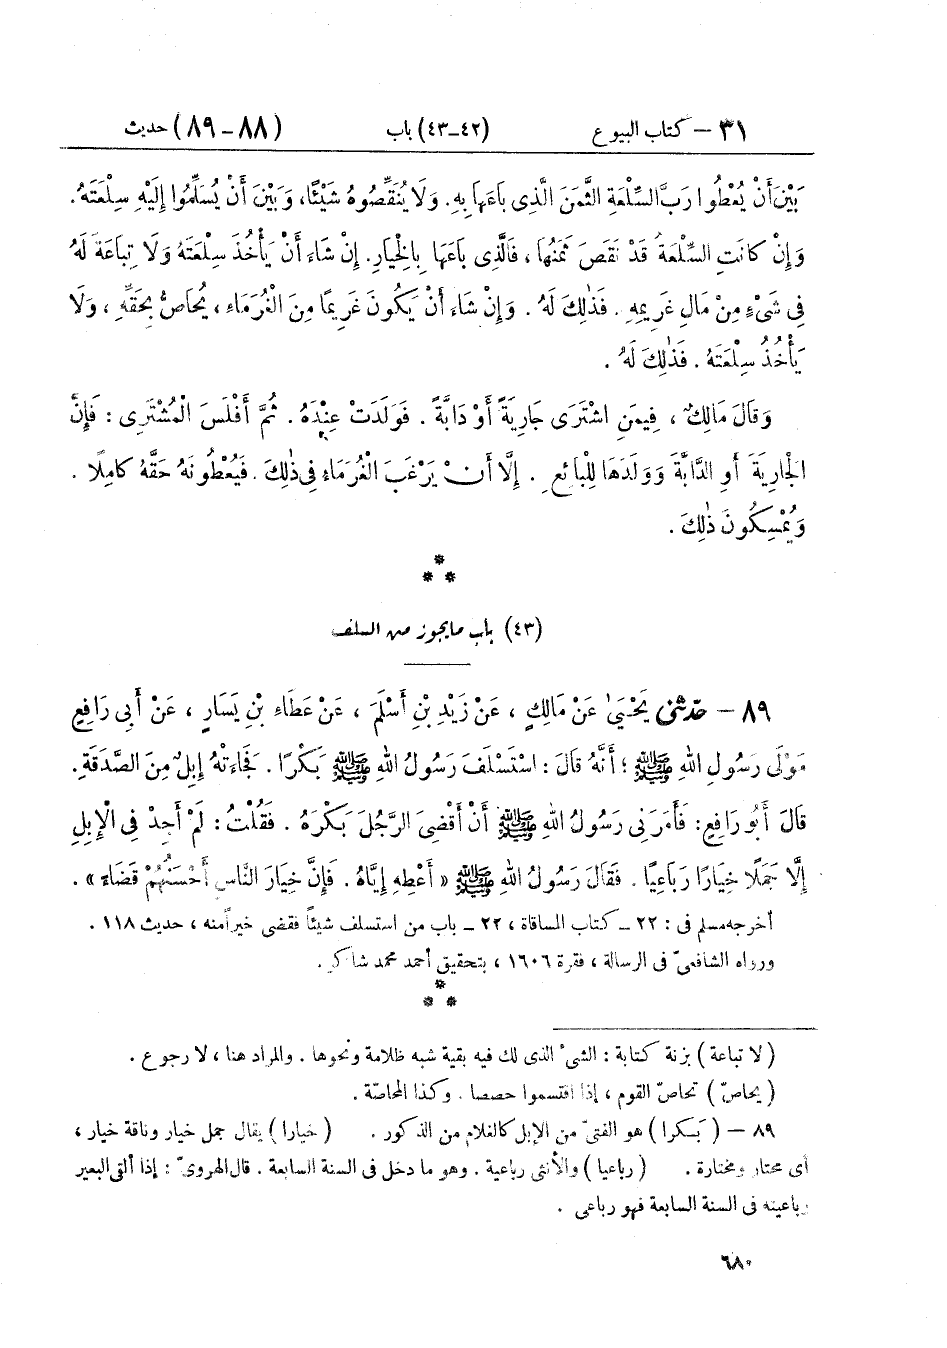 ٣١ – كتاب البيوع (٤٢-٤٣) باب (٨٨-٨٩) حديث
بَيْنَ أَنْ يُعْطُوا رَبَّ السِّلْعَةِ الثَّمَنَ الَّذِى بَاعَهَا بِهِ. وَلَا يُنَقِّصُوهُ شَيْئًا، وَبَيْنَ أَنْ يُسَلِّمُوا إِلَيْهِ سِلْعَتَهُ.
وَإِنْ كَانَتِ السِّلْعَةُ قَدْ نَقَصَ ثَمَنُهَا، فَالَّذِى بَاعَهَا بِالْخِيَارِ. إِنْ شَاءَ أَنْ يَأْخُذَ سِلْعَتَهُ وَلَا تِبَاعَةَ لَهُ
فِى شَىْءٍ مِنْ مَالِ غَرِيمِهِ. فَذٰلِكَ لَهُ. وَإِنْ شَاءَ أَنْ يَكُونَ غَرِيمًا مِنَ الْغُرَمَاءِ، يُحَاصُّ بِحَقِّهِ، وَلَا
يَأْخُذُ سِلْعَتَهُ. فَذٰلِكَ لَهُ.
وَقَالَ مَالِكٌ، فِيمَنِ اشْتَرَى جَارِيَةً أَوْ دَابَّةً. فَوَلَدَتْ عِنْدَهُ. ثُمَّ أَفْلَسَ الْمُشْتَرِى: فَإِنَّ
الْجَارِيَةَ أَوِ الدَّابَّةَ وَوَلَدَهَا لِلْبَائِعِ. إِلَّا أَنْ يَرْغَبَ الْغُرَمَاءُ فِى ذٰلِكَ. فَيُعْطُونَهُ حَقَّهُ كَامِلًا.
وَيُمْسِكُونَ ذٰلِكَ.
*
* *
(٤٣) باب ما يجوز من السلف
٨٩ – حدّثنى يَحْيَىٰ عَنْ مَالِكٍ، عَنْ زَيْدِ بْنِ أَسْلَمَ، عَنْ عَطَاءِ بْنِ يَسَارٍ، عَنْ أَبِى رَافِعٍ
مَوْلَى رَسُولِ اللهِ ﷺ؛ أَنَّهُ قَالَ: اسْتَسْلَفَ رَسُولُ اللهِ ﷺ بَكْرًا. فَجَاءَتْهُ إِبِلٌ مِنَ الصَّدَقَةِ.
قَالَ أَبُو رَافِعٍ: فَأَمَرَنِى رَسُولُ اللهِ ﷺ أَنْ أَقْضِىَ الرَّجُلَ بَكْرَهُ. فَقُلْتُ: لَمْ أَجِدْ فِى الْإِبِلِ
إِلَّا جَمَلًا خِيَارًا رَبَاعِيًا. فَقَالَ رَسُولُ اللهِ ﷺ « أَعْطِهِ إِيَّاهُ. فَإِنَّ خِيَارَ النَّاسِ أَحْسَنُهُمْ قَضَاءً ».
أخرجه مسلم فى: ٢٢ – كتاب المساقاة، ٢٢ – باب من استسلف شيئاً فقضى خيراً منه، حديث ١١٨.
ورواه الشافعىّ فى الرسالة، فقرة ١٦٠٦، بتحقيق أحمد محمد شاكر.
*
* *
(لا تباعة) بزنة كتابة: الشىء الذى لك فيه بقية شبه ظلامة ونحوها. والمراد هنا، لا رجوع.
(يحاصّ) تحاصّ القوم، إذا اقتسموا حصصا. وكذا المحاصّة.
٨٩ – (بَكرا) هو الفتىّ من الإبل كالغلام من الذكور. (خيارا) يقال جمل خيار وناقة خيار،
أى مختار ومختارة. (رباعيا) والأنثى رباعية. وهو ما دخل فى السنة السابعة. قال الهروىّ: إذا ألقى البعير
رباعيته فى السنة السابعة فهو رباعى.
٦٨٠